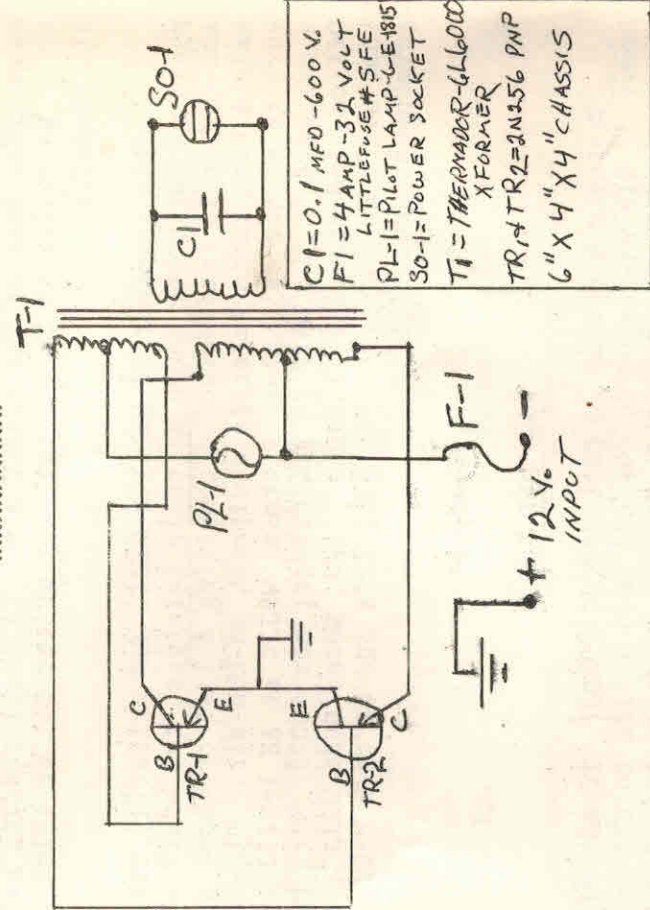 T-1
SO-1
C1
PL-1
F-1
C
B
E
TR-1
E
B
C
TR-2
+ 12 V. -
INPUT
C1=0.1 MFD-600V.
F1=4AMP-32 VOLT
LITTLEFUSE#SFE
PL-1=PILOT LAMP-G-E-1815
SO-1=POWER SOCKET
T1=THERMADOR-6L6000
XFORMER
TR1&TR2=2N256 PNP
6"X4"X4" CHASSIS